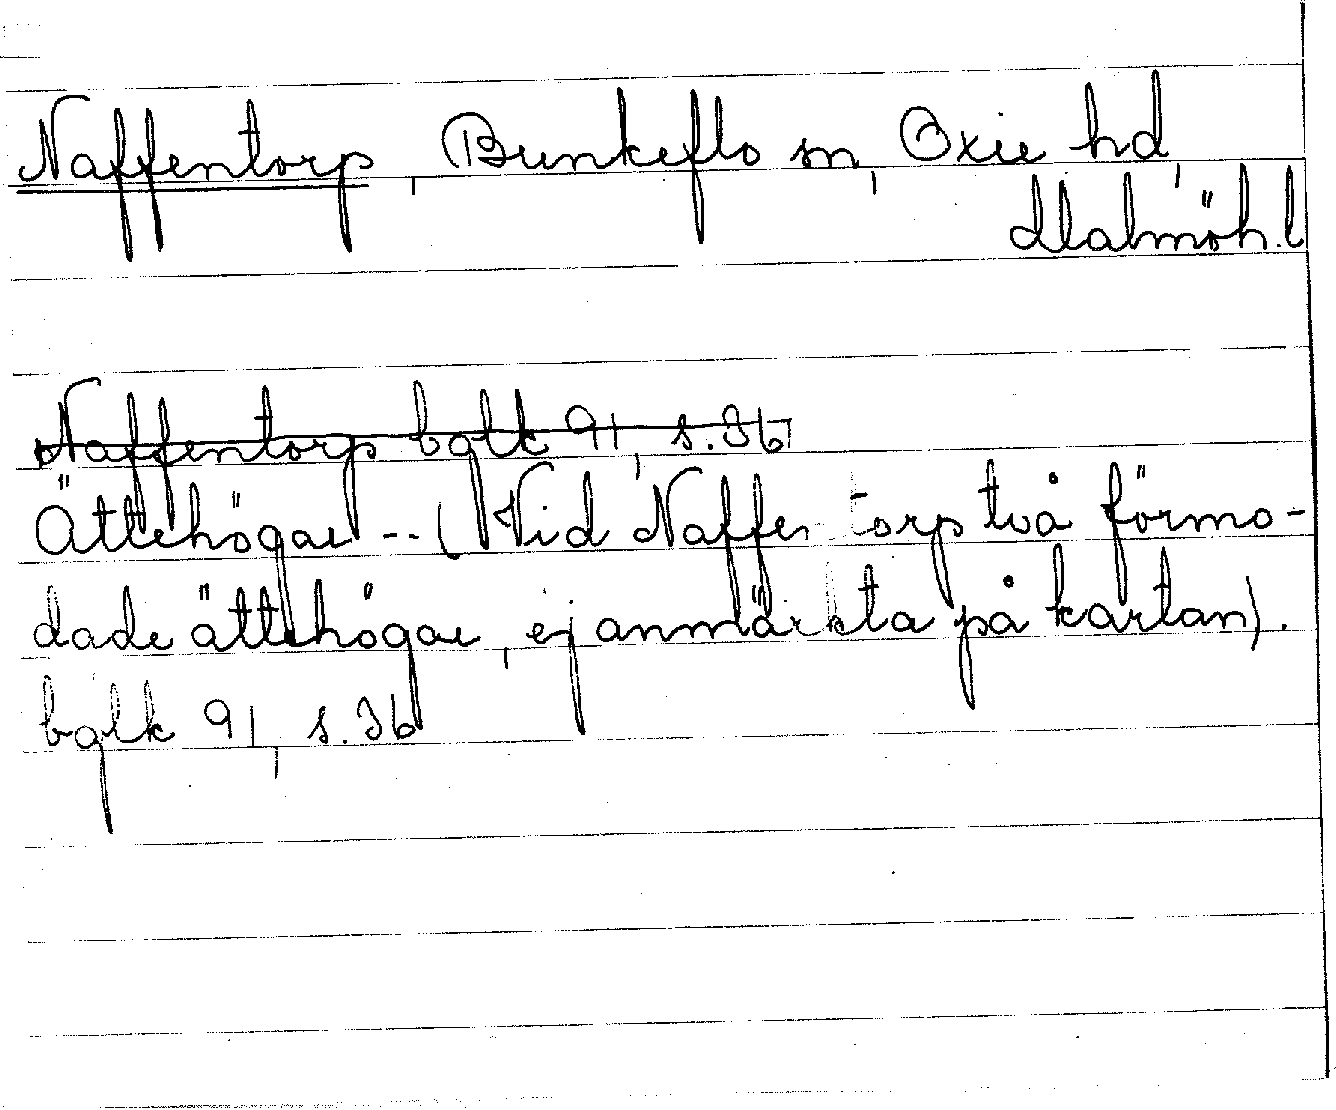 Naffentorp, Bunkeflo sn, Oxie hd,
Malmöh. l
Naffentorp bglk 91, s. 36
Ättehögar -- (Vid Naffentorp två förmo-
dade ättehögar, ej anmärkta på kartan).
bglk 91, s. 36